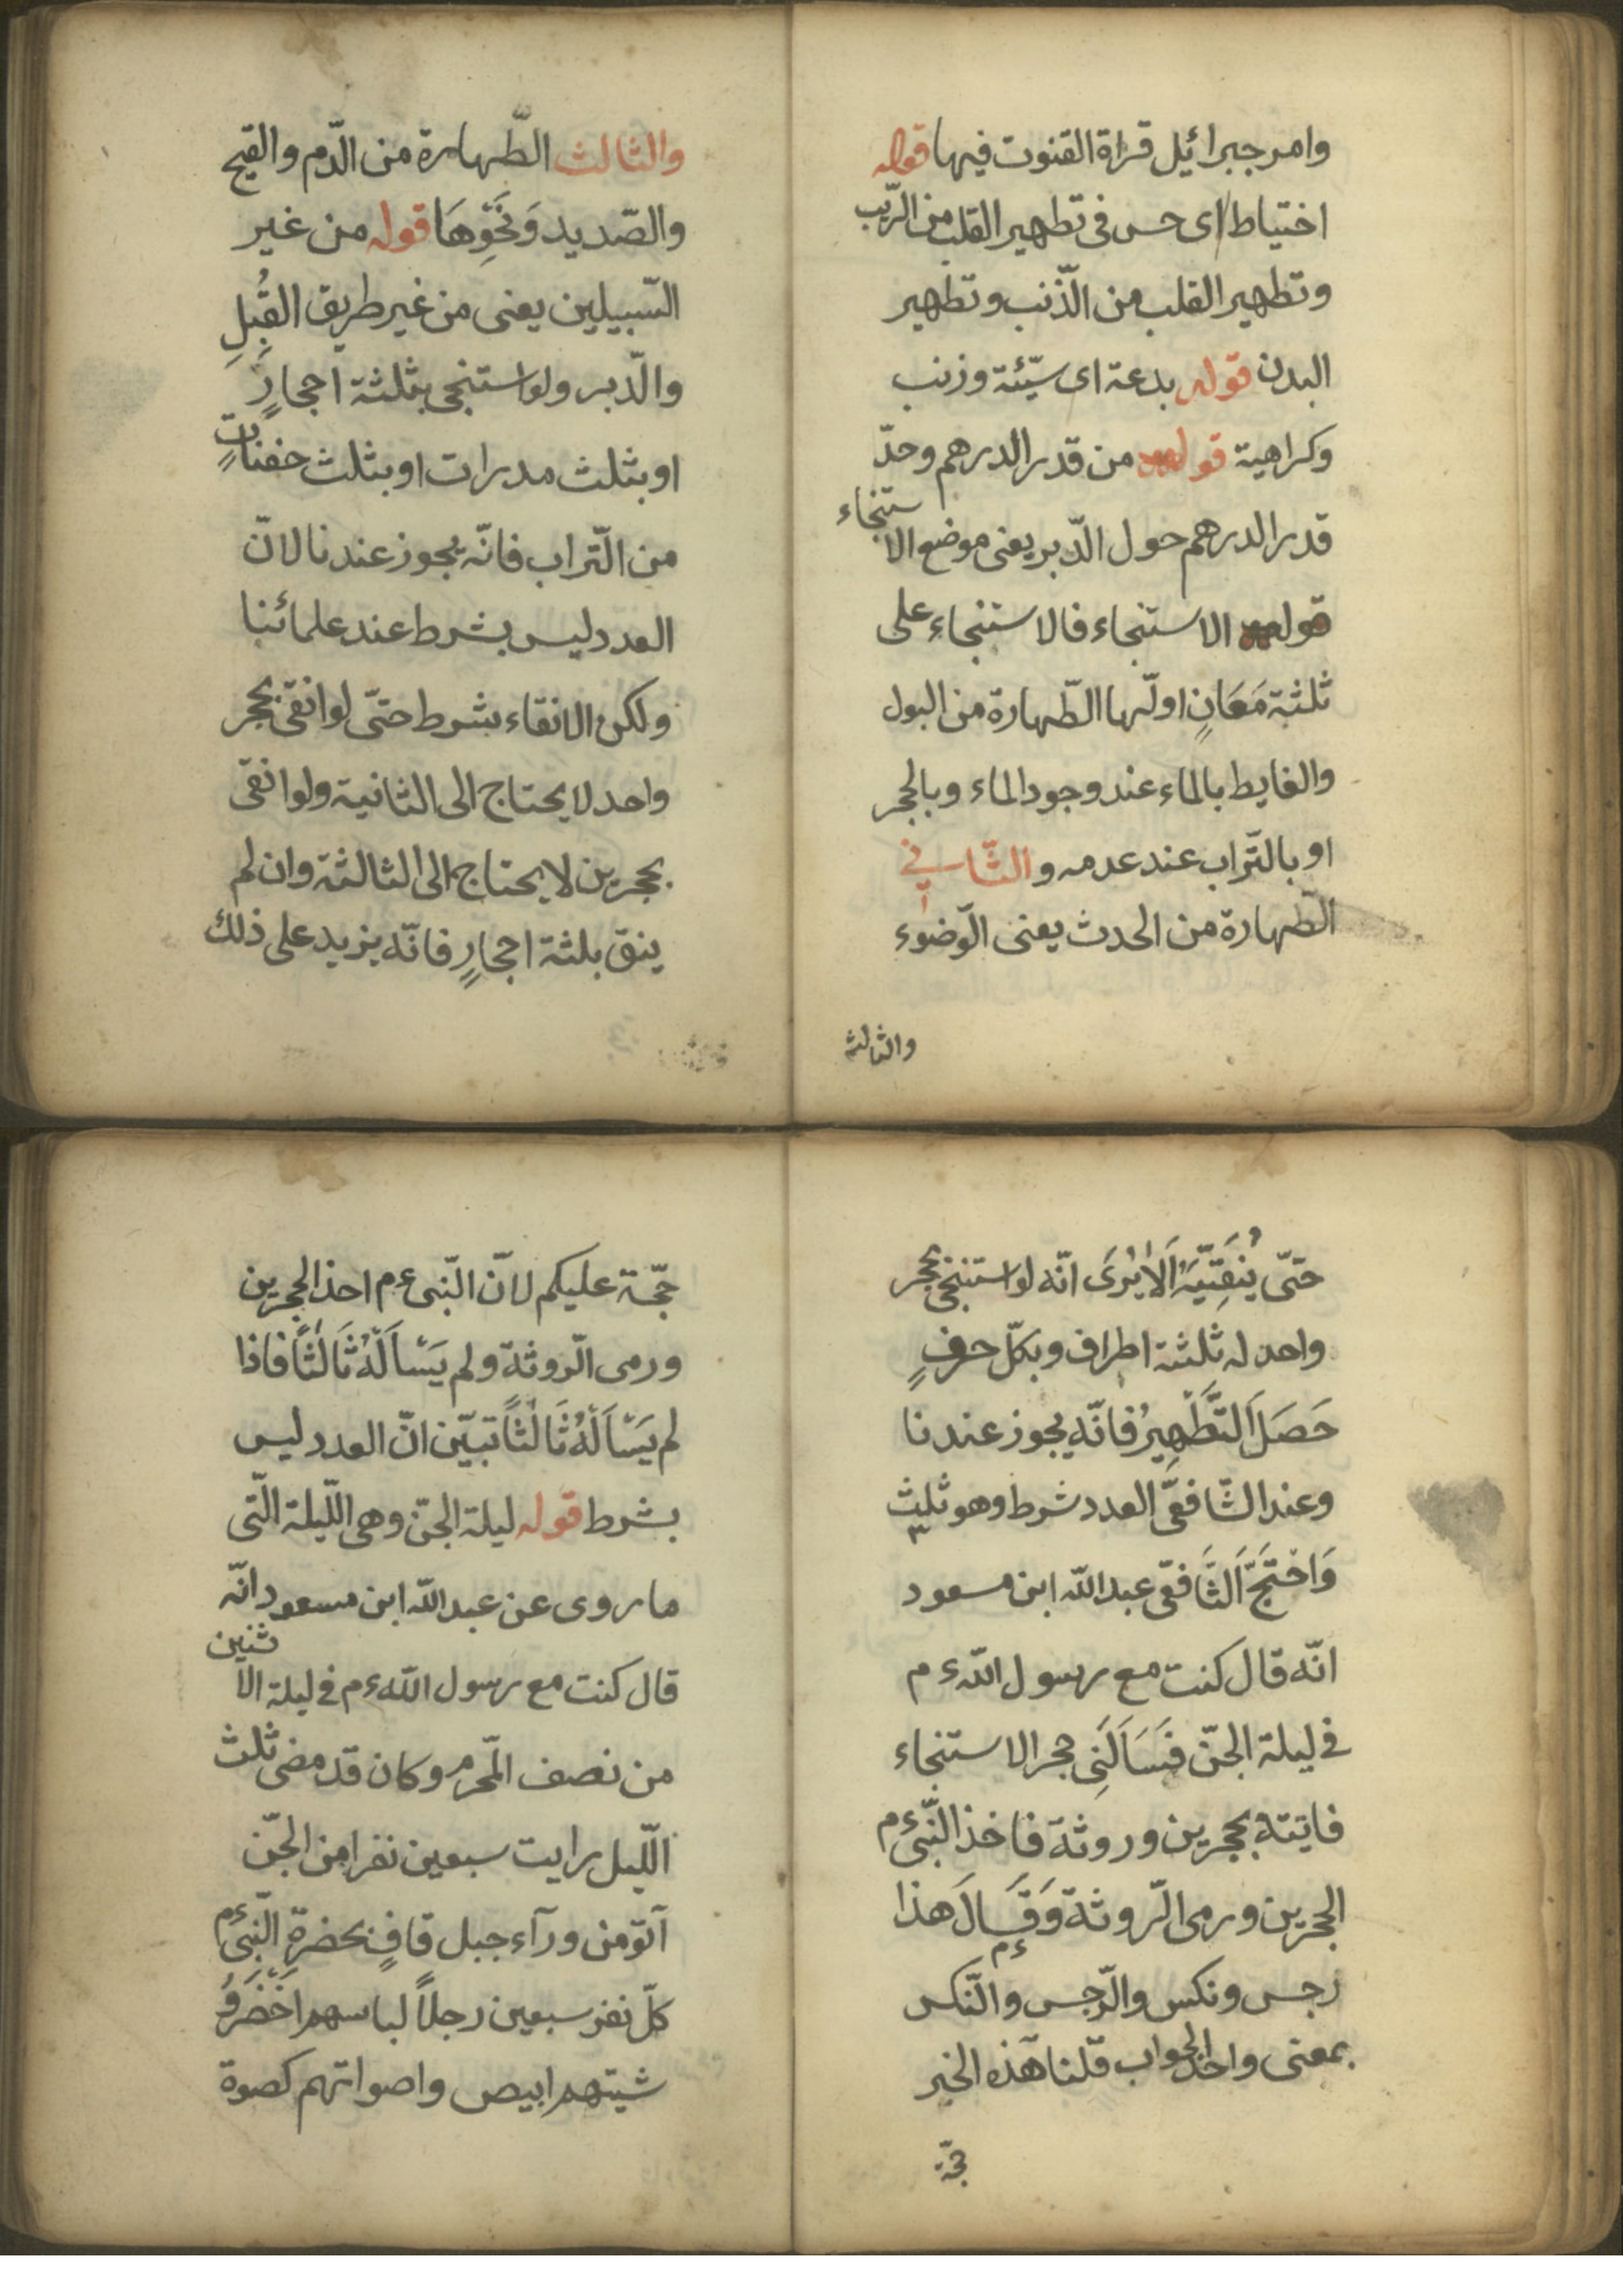 وامر جبرائيل قراة القنوت فيها قوله
اختياط اى حس فى تطهير القلب من الرّيب
وتطهير القلب من الذّنب وتطهير
البدن قوله بدعة اى سيّئة وزنب
وكراهية قوله من قدر الدرهم وحدّ
قدر الدرهم حول الدّبر يعنى موضع الاستنجاء
قوله الاستنجاء فالاستنجاء على
ثلثة مَعَانٍ اولّها الطّهارة من البول
والغايط بالماء عند وجود الماء وبالحجر
او بالتّراب عند عدمه والثّانى
الطّهارة من الحدث يعنى الوضوء
والثالث
والثالث الطّهارة من الدّم والقيح
والصّديد وَنَحْوِهَا قوله من غير
السّبيلين يعنى من غير طريق القُبُلِ
والدّبر ولو استنجى بثلثة احجارٍ
او بثلث مدرات او بثلث حفناتٍ
من التّراب فانّه يجوز عندنا لانّ
العدد ليس بشرط عند علمائنا
ولكن الانقاء بشرط حتّى لو انقى بحجر
واحد لا يحتاج الى الثانية ولو انقى
بحجرين لا يحتاج الى الثالثة وان لم
ينق بلثة احجارٍ فانّه يزيد على ذلك
حتّى يُنقِيَّهُ اَلاَ يُرَى انّه لو استنجى بحجر
واحد له ثلثة اطراف وبكلّ حرفٍ
حَصَلَ اَلتَّطْهِيرُ فانّه يجوز عندنا
وعند الشّافعّى العدد شرط وهو ثلث ٣
وَاحْتَجَّ اَلشَّافعّى عبد اللّه ابن مسعود
انّه قال كنت مع رسول اللّه ءم
فى ليلة الجنّ فَسَاَلَنِى حجر الاستنجاء
فايتته بحجرين وروثة فاخذ النّبىّ ءم
الحجرين ورمى الرّوثة وَقَالَ ءم هذا
رجس ونكس والرّجس والنّكس
بمعنى واحد الجواب قلنا هذه الخبر
حجّة
حجّة عليكم لانّ النّبى ءم احذ الحجرين
ورمى الرّوثة ولم يَسْاَلْهُ ثَالثًا فاذا
لم يَسْاَلْهُ ثَالثًا تبيّن انّ العدد ليس
بشرط قوله ليلة الجنّ وهى اللّيلة الّتى
ما روى عن عبد اللّه ابن مسعود انّه
قال كنت مع رسول اللّه ءم فى ليلة الاثنين
من نصف المّحرم وكان قد مضى ثلث
اللّيل رايت سبعين نفرا من الجنّ
آتو من ورآء جبل قافٍ بحضرة النّبىّ ءم
كلّ نفر سبعين رجلاً لباسهم اَخْضَرُ وُ
شيتهم ابيص واصواتهم كصوة